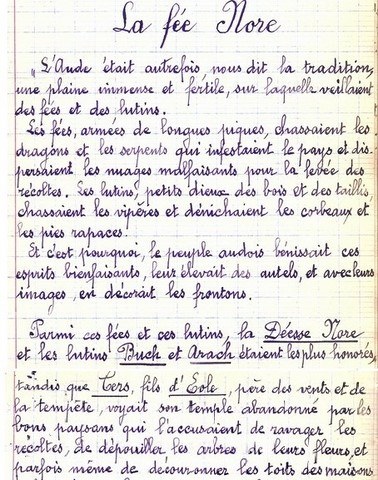 La fée Nore
"L'Aude était autrefois, nous dit la tradition,
une plaine immense et fertile, sur laquelle veillaient
des fées et des lutins.
Les fées, armées de longues piques, chassaient les
dragons et les serpents qui infestaient le pays et dis-
persaient les nuages malfaisants pour la levée des
récoltes. Les lutins, petits dieux des bois et des taillis,
chassaient les vipères et dénichaient les corbeaux et
les pies rapaces.
Et c'est pourquoi, le peuple audois bénissait ces
esprits bienfaisants, leur élevait des autels, et avec leurs
images, en décorait les frontons.
Parmi ces fées et ces lutins, la Déesse Nore
et les lutins Buch et Arach étaient les plus honorés,
tandis que Cers, fils d'Eole, père des vents et de
la tempête, voyait son temple abandonné par les
bons paysans qui l'accusaient de ravager les
récoltes, de dépouiller les arbres de leurs fleurs, et
parfois même de découronner les toits des maisons